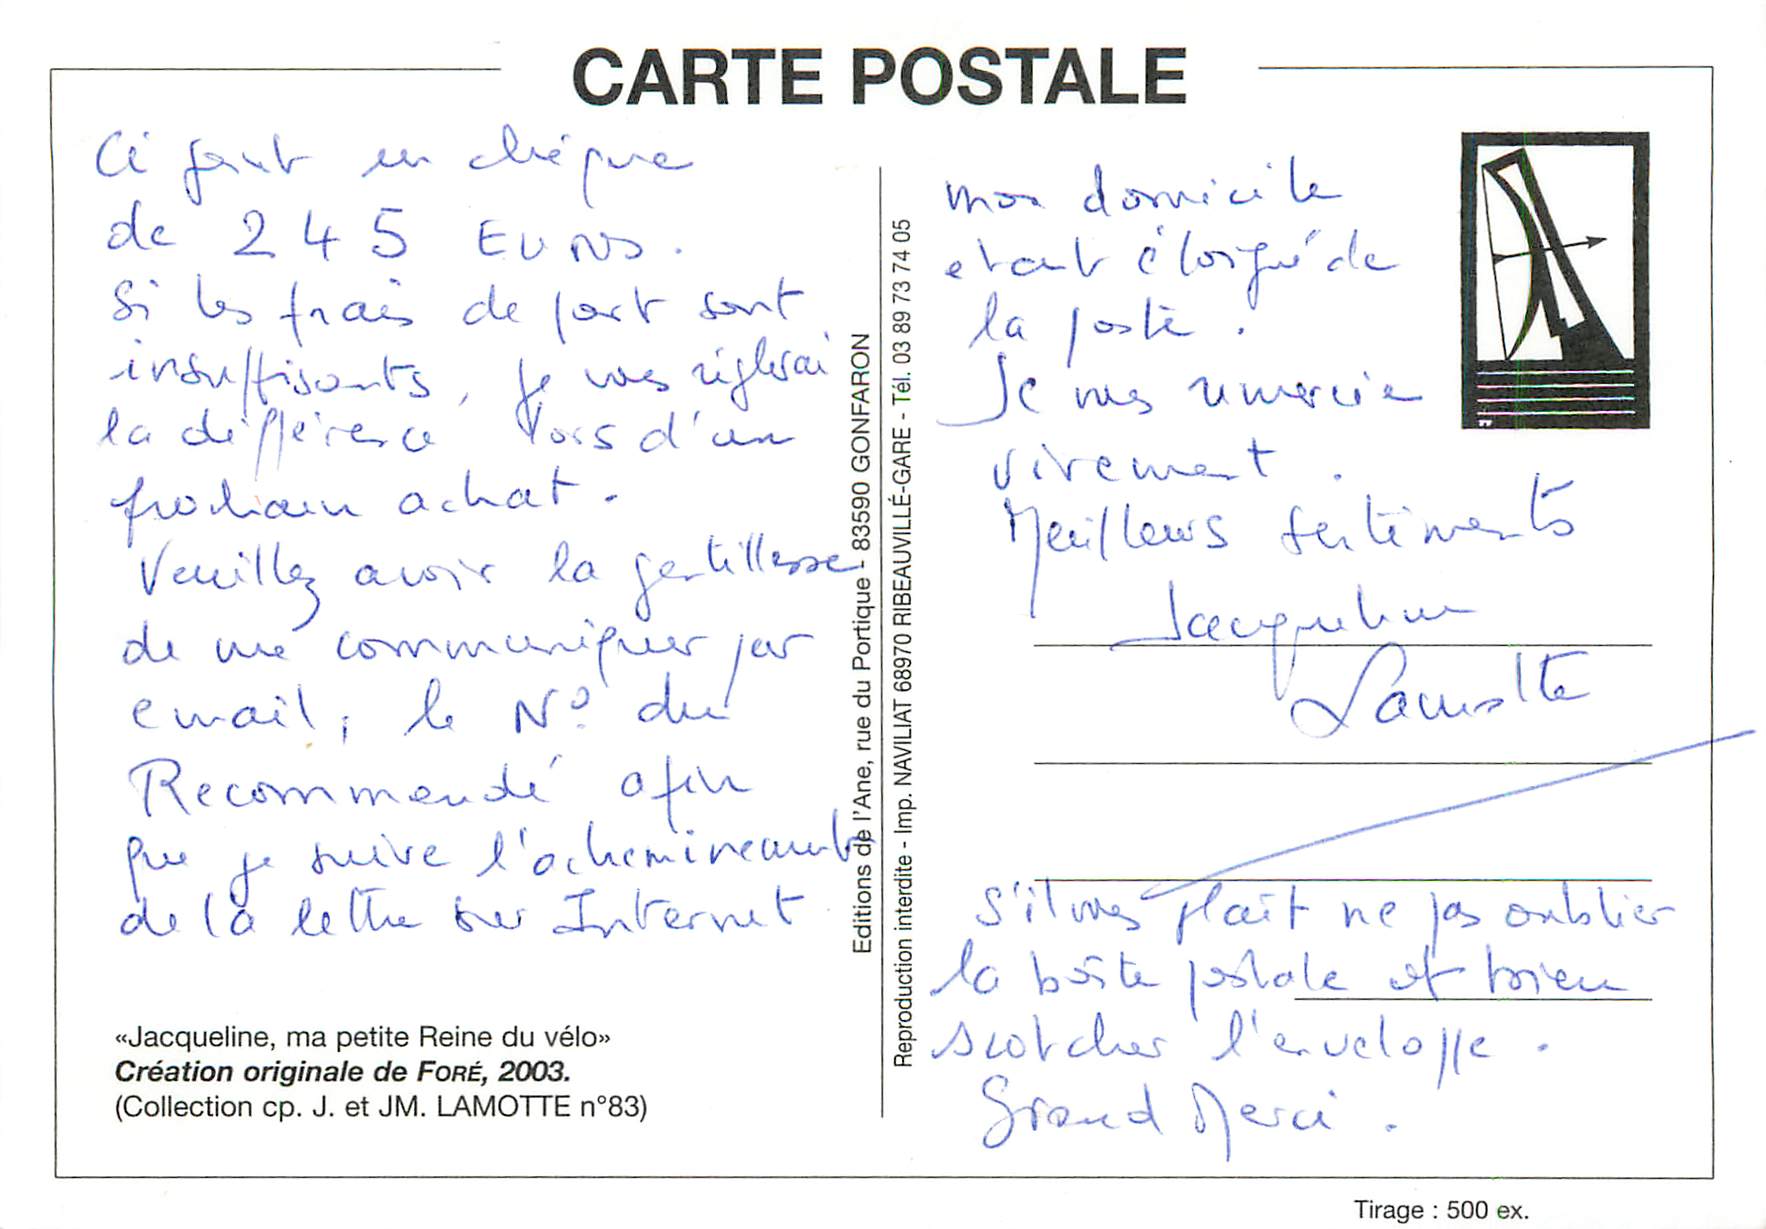 CARTE POSTALE
Ci joint un chèque
de 245 Euros.
Si les frais de port sont
insuffisants, je vous réglerai
la différence lors d'un
prochain achat.
Veuillez avoir la gentillesse
de me communiquer par
email, le N° du
Recommandé afin
que je suive l'acheminement
de la lettre sur Internet
«Jacqueline, ma petite Reine du vélo»
Création originale de FORÉ, 2003.
(Collection cp. J. et JM. LAMOTTE n°83)
Editions de l'Ane, rue du Portique - 83590 GONFARON
Reproduction interdite - Imp. NAVILIAT 68970 RIBEAUVILLÉ-GARE - Tél. 03 89 73 74 05
mon domicile
etant éloigné de
la poste.
Je vous remercie
vivement.
Meilleurs sentiments
Jacqueline
Lamotte
S'il vous plaît ne pas oublier
la boîte postale et bien
scotcher l'enveloppe.
Grand Merci.
Tirage : 500 ex.